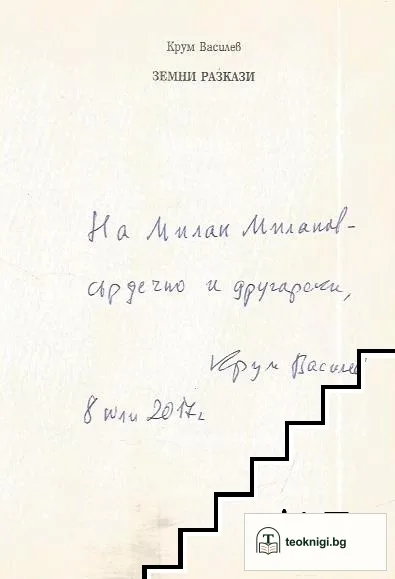 Крум Василев
ЗЕМНИ РАЗКАЗИ
На Милан Миланов-
сърдечно и другарски,
Крум Василев
8 юли 2017 г
teoknigi.bg